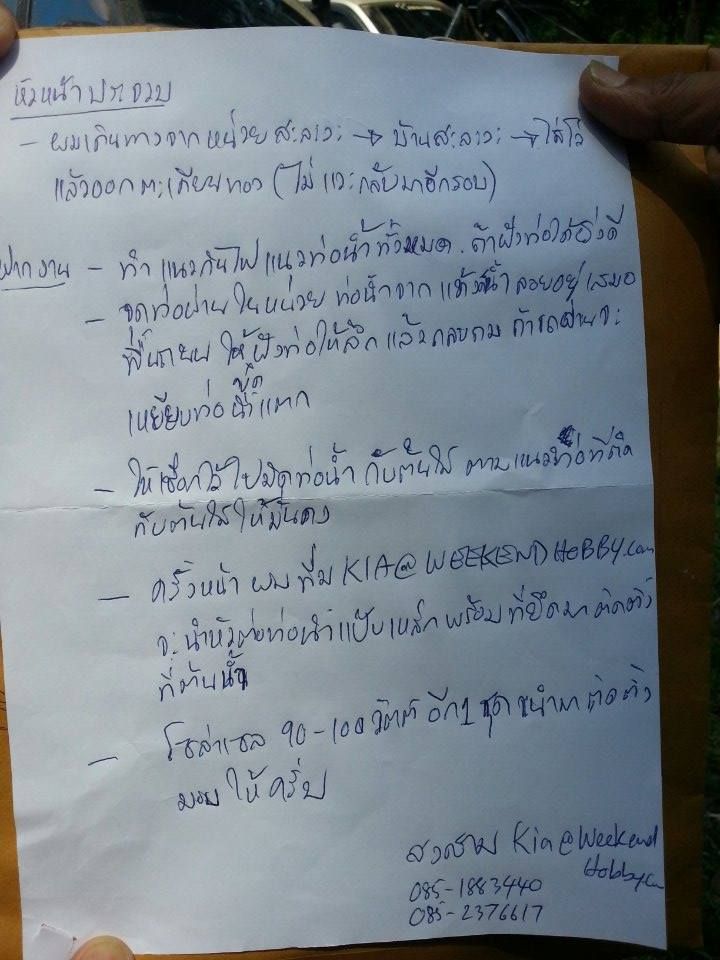 หัวหน้าประจวบ
- ผมเดินทางจากหน่วยสะลาวะ → บ้านสะลาวะ → ไล่โว่
แล้วออกตะเคียนทอง (ไม่แวะกลับมาอีกรอบ)
ฝากงาน - ทำแนวกันไฟแนวท่อน้ำทั้งหมด. ถ้าฝังท่อได้ยิ่งดี
- จุดท่อผ่านในหน่วย ท่อน้ำจากแท้งค์น้ำลอยอยู่เสมอ
พื้นถนน ให้ฝังท่อให้ลึกแล้วกลบถม ถ้ารถผ่านจะ
เหยียบท่อน้ำแตก
- ให้เชือกไว้ไปมัดท่อน้ำ กับต้นไม้ ตามแนวท่อที่ติด
กับต้นไม้ให้มั่นคง
- ครั้งหน้า ผม ทีม KIA@WEEKENDHOBBY.com
จะนำหัวต่อท่อน้ำแป๊บเหล็กพร้อมที่ยึดมาติดตั้ง
ที่ต้นน้ำ
- โซล่าเซล 90-100 วัตต์ อีก 1 ชุด จะนำมาติดตั้ง
มอบให้ครับ
สงสาม Kia@Weekend
Hobby.com
085-1883440
085-2376617